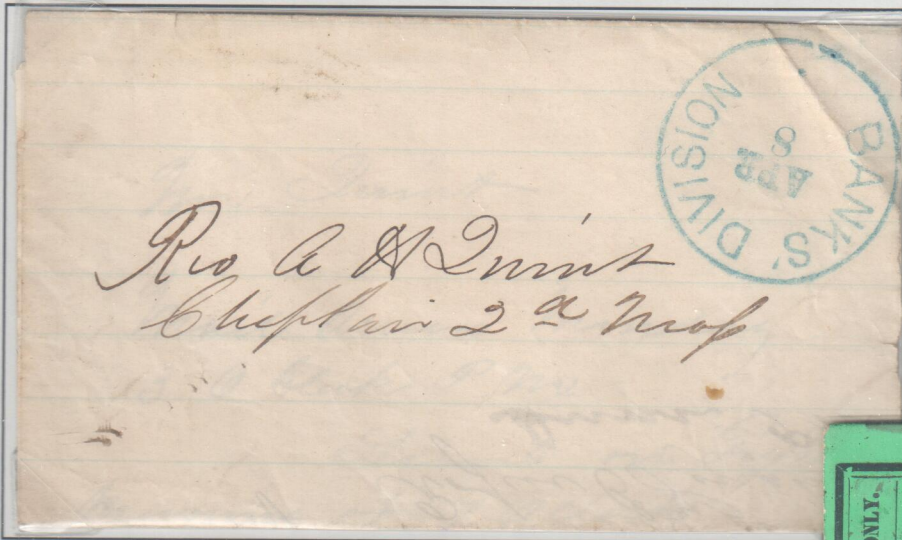 BANKS' DIVISION
APR
8
Rev A H Quint
Chaplain 2d Mass
ONLY.